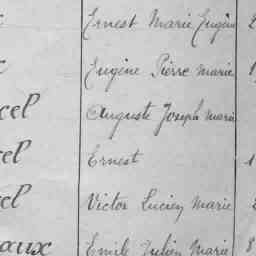 Ernest Marie Eugène 2
Eugène Pierre Marie 1
cel Auguste Joseph Marie
cel Ernest 1
cel Victor Lucien Marie
aux Emile Julien Marie 8